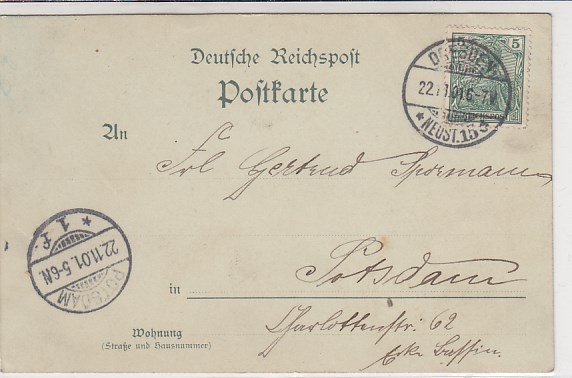 Deutsche Reichspost
Postkarte
5
DRESDEN
22.11.01 6-7N
* NEUST. 15
An
Frl Gertrud Spormann
* 1 f.
22.11.01. 5-6N.
POTSDAM
in Potsdam
Wohnung
(Straße und Hausnummer)
Charlottenstr: 62
Ecke Bassin.